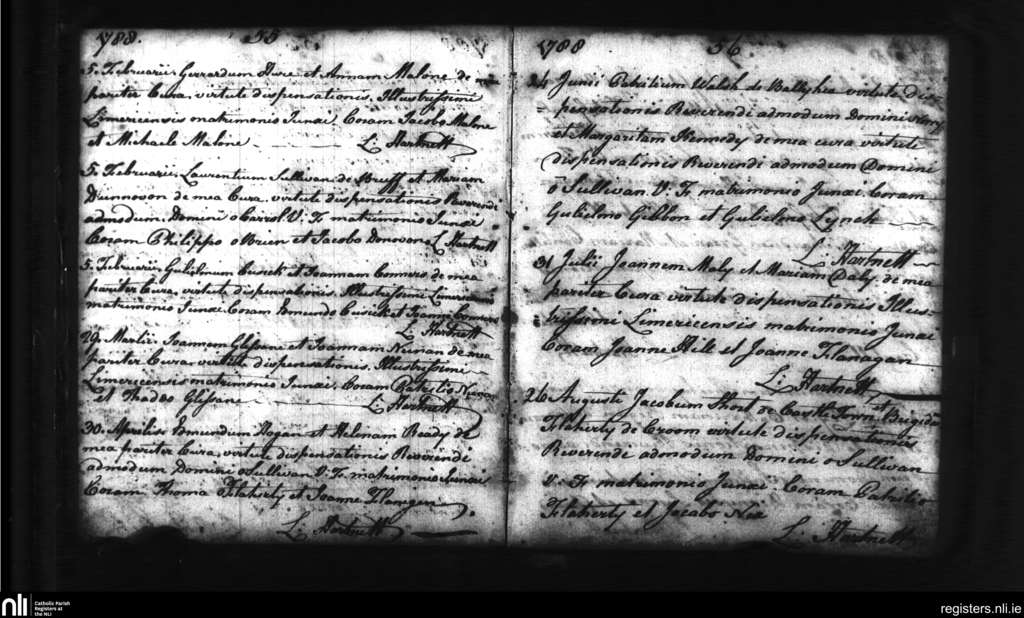 1788. 55
5. Februarii Gerrardum Hure et Annam Malone de mea
pariter Cura, virtute dispensationis. Illustrissimi
Limericensis matrimonio Junxi. Coram Jacobo Malone
et Michaele Malone L. Hartnett
5. Februarii. Laurentium Sullivan de Bruff et Mariam
Dunnovon de mea Cura, virtute dispensationis Reverendi
admodum Domini o Carrol. V. F. matrimonio Junxi
Coram Philippo o Brien et Jacobo Donovan L Hartnett
5. Februarii, Gulielmum Cusick et Joannam Connors de mea
pariter Cura, virtute dispensationis. Illustrissimi Limericensis
matrimonio Junxi Coram Edmundo Cusick et Joanne Connors
L. Hartnett
29. Martii. Joannem Glessane et Joannam Nunan de mea
pariter Cura, virtute dispensationis. Illustrissimi
Limericensis matrimonio Junxi, Coram Patritio Nunan
et Thadeo Glessane L. Hartnett
30. Aprilis Edmundum Hogan et Helenam Ready de
mea pariter Cura, virtute dispensationis Reverendi
admodum Domini o Sullivan V. F. matrimonio Junxi
Coram Thoma Flaherty et Joanne Flanagan
L. Hartnett
1788 56
24 Junii Patritium Walsh de Ballyhea virtute dis-
pensationis Reverendi admodum Domini
et Margaritam Kennedy de mea cura virtute
dispensationis Reverendi admodum Domini
o Sullivan. V. F. matrimonio Junxi Coram
Gulielmo Gibbon et Gulielmo Lynch
L. Hartnett
31 Julii Joannem Maly et Mariam Daly de mea
pariter Cura virtute dispensationis Illus-
trissimi Limericensis matrimonio Junxi
Coram Joanne Hill et Joanne Flanagan
L. Hartnett
26 Augusti Jacobum Short de Castle et Brigidam
Flaherty de Croom virtute dispensationis
Reverendi admodum Domini o Sullivan
V. F. matrimonio Junxi Coram Patritio
Flaherty et Jacobo Nea
L. Hartnett
nli Catholic Parish
Registers at
the NLI
registers.nli.ie